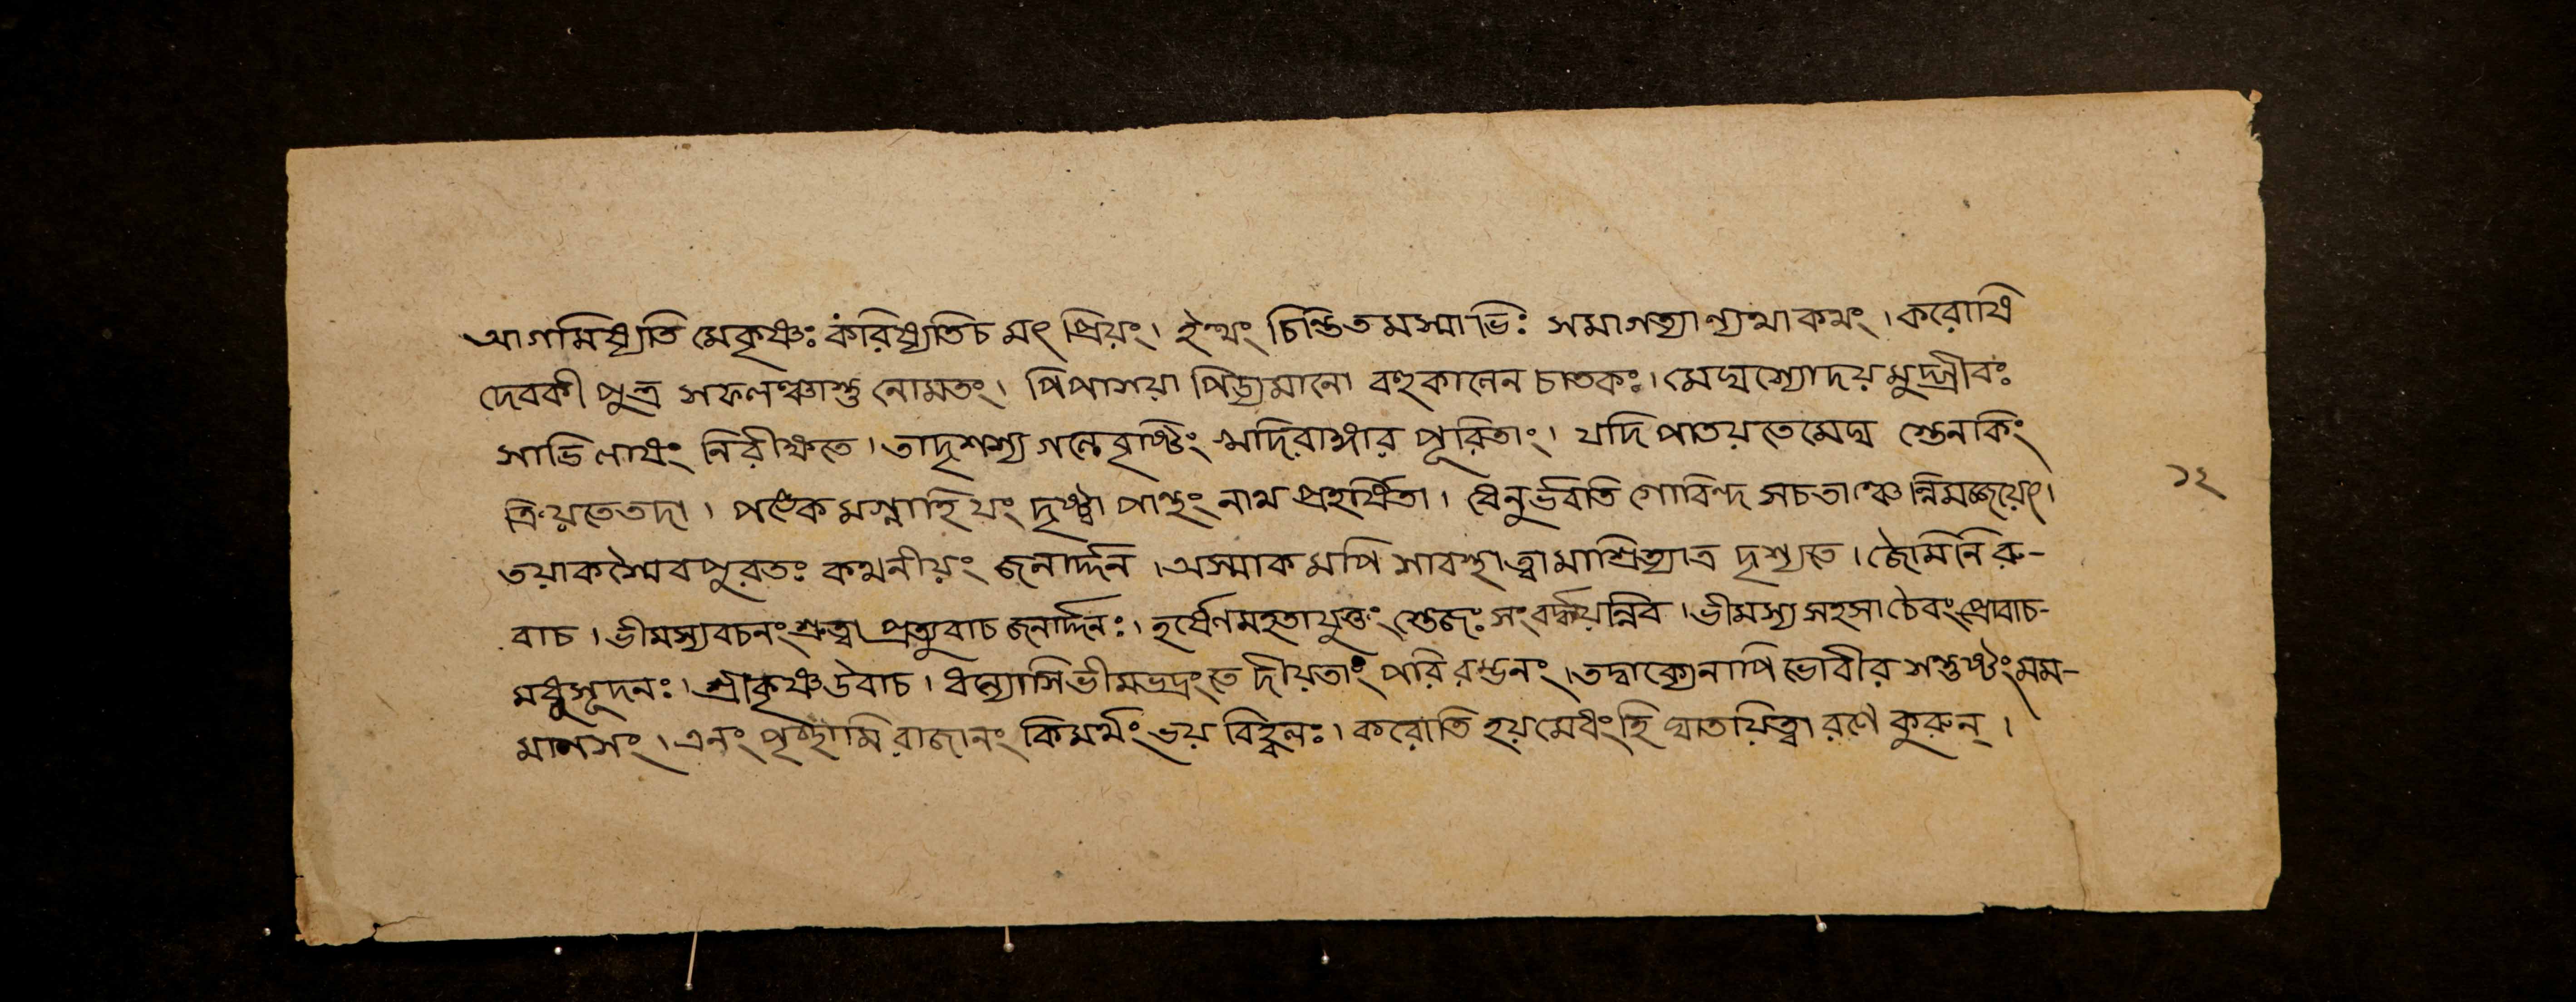 আগমিষ্যতি মেকৃষ্ণঃ করিষ্যতিচ মৎ প্রিয়ং। ইত্থং চিন্তিতমস্মাভিঃ সমাগত্যান্যথাকথং। করোষি
দেবকীপুত্র সফলঞ্চাস্তু নোমতং। পিপাসয়া পিড্যমানো বহুকালেন চাতকঃ। মেঘস্যোদয়মুদ্গ্রীবঃ
সাভিলাষং নিরীক্ষতে। তাদৃশস্য গলে বৃষ্টিং খাদিরাঙ্গার পূরিতাং। যদি পাতয়তেমেঘ স্তেনকিং
ক্রিয়তেতদা। পঙ্কেমগ্নাহিযং দৃষ্ট্বা পান্থং নাথ প্রহর্ষিতা। ধেনুর্ভবতি গোবিন্দ সচতাঞ্চেন্নিমজ্জয়েৎ।
তয়াকস্যৈবপুরতঃ কথনীয়ং জনার্দ্দন। অস্মাকমপি সাবস্থা ত্বামাশ্রিত্যাত্র দৃশ্যতে। জৈমিনিরু-
বাচ। ভীমস্যবচনং শ্রুত্বা প্রত্যুবাচ জনার্দ্দনঃ। হর্ষেণমহতাযুক্তং স্তেজঃ সংবর্দ্ধয়ন্নিব। ভীমস্য সহসা চৈবং প্রোবাচ-
মধুসূদনঃ। শ্রীকৃষ্ণউবাচ। ধন্যোসিভীমভদ্রংতে দীয়তাং পরিরম্ভনং। তদ্বাক্যেনাপি ভোবীর সন্তুষ্টংমম-
মানসং। এনং পৃচ্ছামি রাজানং কিমর্থং ভয়বিহ্বলঃ। করোতি হয়মেধংহি ঘাতয়িত্বা রণে কুরুন্।
১২